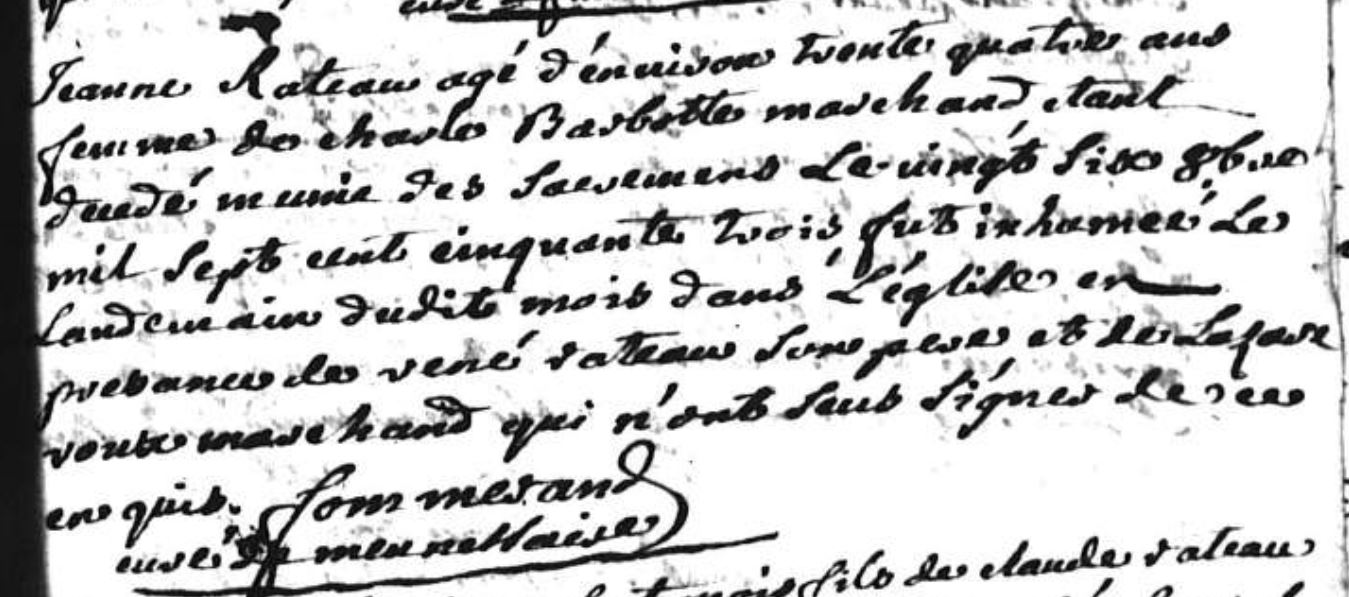 Jeanne Rateau agé d'énuiron trente quatre ans
femme de charle Barbotte marchand etant
decedé munie des sacremens Le vingt six 8bre
mil sept cent cinquante trois fut inhumeé Le
Landemain dudit mois dans L'église en
presance de rené rateau son pere et de Lazare
marchand qui n'ont seus signer de ce
enquis. Sommerand
curé de mennetlaise
mois fils de claude rateau